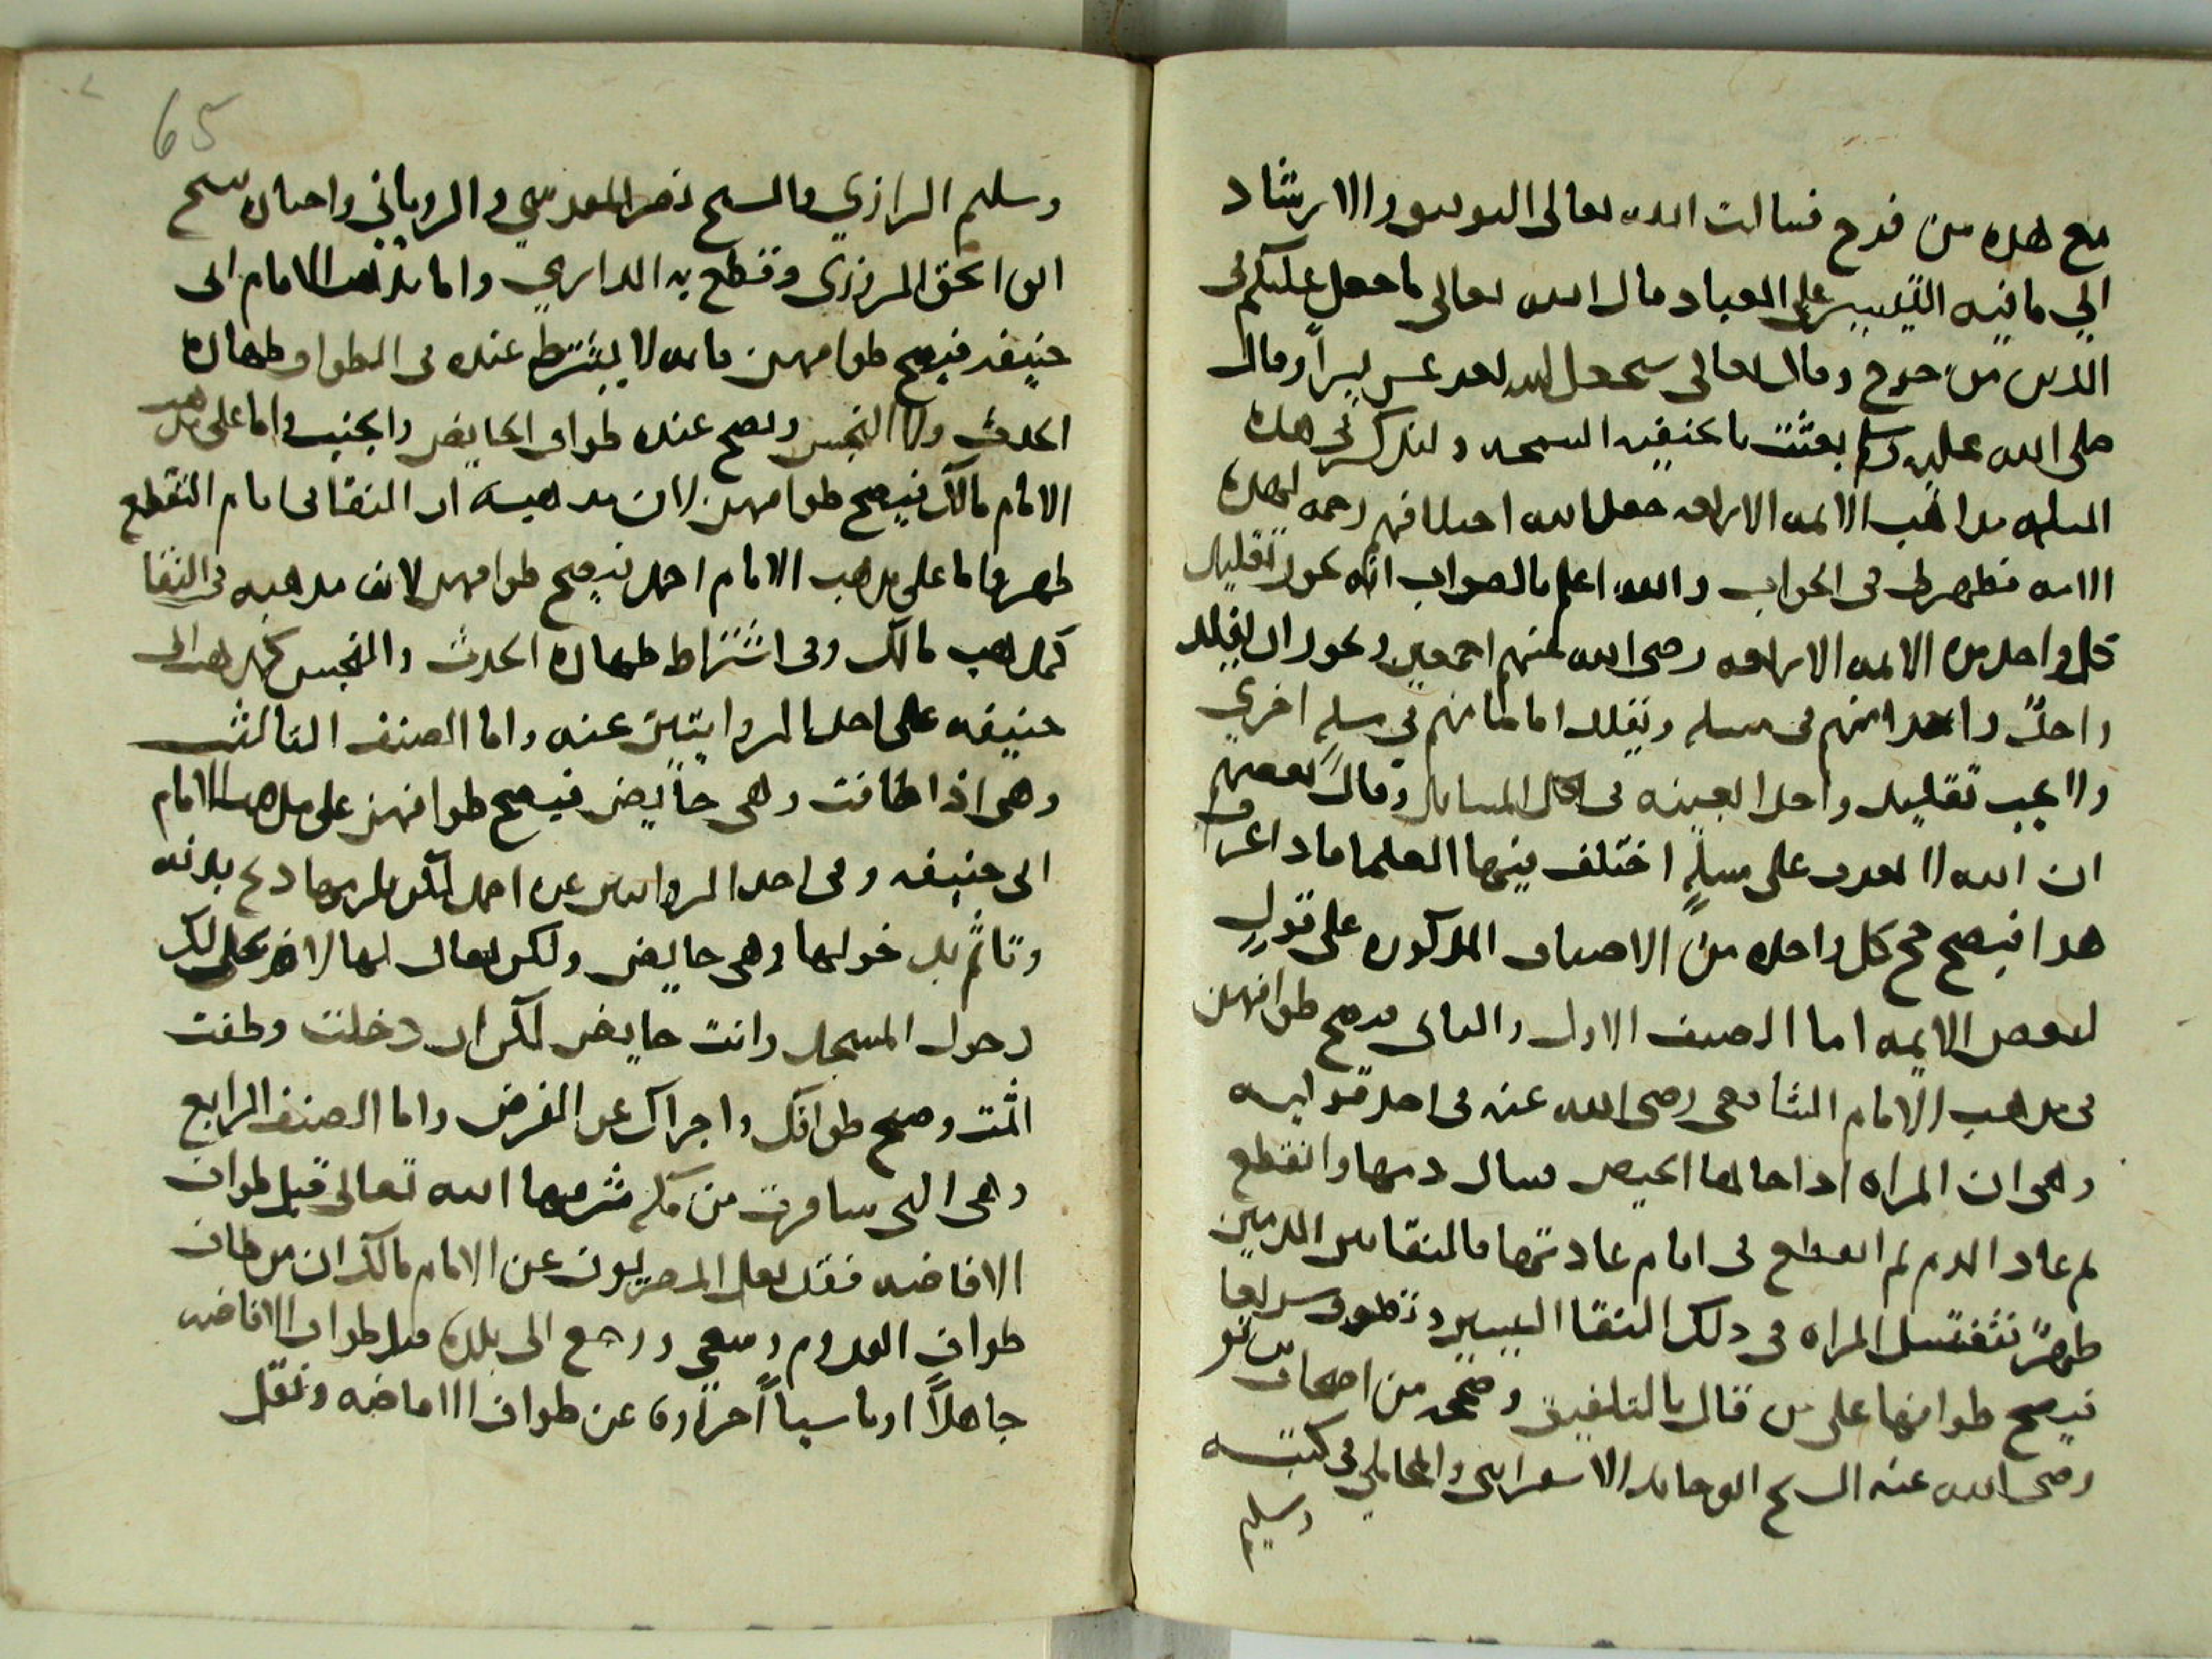 مع هده من فدح فسالت الله تعالى التوفيق والارشاد
الي ما فيه التيسير على العباد قال الله تعالى ما جعل عليكم في
الدين من حرج وقال تعالى سيجعل الله بعد عسر يسراً وقال
صلى الله عليه وسلم بعثت بالحنيفيه السمحه ولنذكر في هده
المسله مداهب الايمه الاربعه جعل الله اختلافهم رحمه لهده
الامه فظهر لى فى الجواب والله اعلم بالصواب انه يجوز تقليد
كل واحد من الايمه الاربعه رضى الله عنهم اجمعين ويجوز ان يقلد
واحدٌ واحدا منهم فى مسله ويقلد اماما منهم في مسلهٍ اخري
ولا يجب تقليد واحدا بعينه فى كل المسايل وقال بعضهم
ان الله لا يعدب على مسلهٍ اختلف فيها العلما فاذا عرف
هدا فيصح حج كل واحده من الاصناف المدكوره على قولٍ
لبعض الايمه اما الصنف الاول والثانى فيصح طوافهن
فى مدهب الامام الشافعى رضى الله عنه فى احد قوليه
وهى ان المراه ادا جاها الحيض فسال دمها وانقطع
ثم عاد الدم ثم انقطع فى ايام عادتها فالنقا بين الدمين
طهرٌ فتغتسل المراه فى دلك النقا اليسير وتطوف سريعا
فيصح طوافها على من قال بالتلفيق وصححه من اصحاب الشافعى
رضى الله عنه الشيخ ابو حامد الاسفراينى والمحاملي فى كتبه
وسليم
65
وسليم الرازي والشيخ نصر المقدسي والروياني واختاره شيخ
ابو اسحق المروزى وقطع به الدارمي واما مذهب الامام ابى
حنيفه فيصح طوافهن فانه لا يشترط عنده فى الطواف طهاره
الحدث ولا النجس ويصح عنده طواف الحايض والجنب واما على مدهب
الامام مالك فيصح طوافهن لان مدهبه ان النقا فى ايام التقطع
طهر واما على مدهب الامام احمد فيصح طوافهن لان مدهبه فى النقا
كمدهب مالك وفى اشتراط طهاره الحدث والنجس كمدهب ابى
حنيفه على احد الروايتين عنه واما الصنف الثالث
وهى اذا طافت وهى حايض فيصح طوافهن على مدهب الامام
ابى حنيفه وفى احد الروايتين عن احمد لكن يلزمها دبح بدنه
وتاثم بدخولها وهى حايض ولكن يقال لها لا يحل لك
دخول المسجد وانت حايض لكن ان دخلت وطفت
اثمت وصح طوافك واجزاك عن الفرض واما الصنف الرابع
وهى التى سافرت من مكه شرفها الله تعالى قبل طواف
الافاضه فنقل المصريون عن الامام مالك ان من طاف
طواف القدوم وسعى ورجع الى بلده قبل طواف الافاضه
جاهلاً او ناسياً اجزاه عن طواف الافاضه ونقل